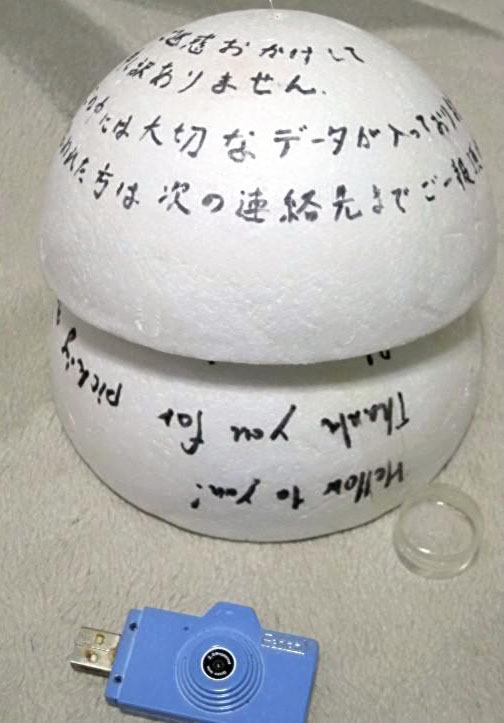 迷惑おかけして
訳ありません.
かには大切なデータが入っており
われた方は次の連絡先までご一報
Hellow to you!
Thank you for picking